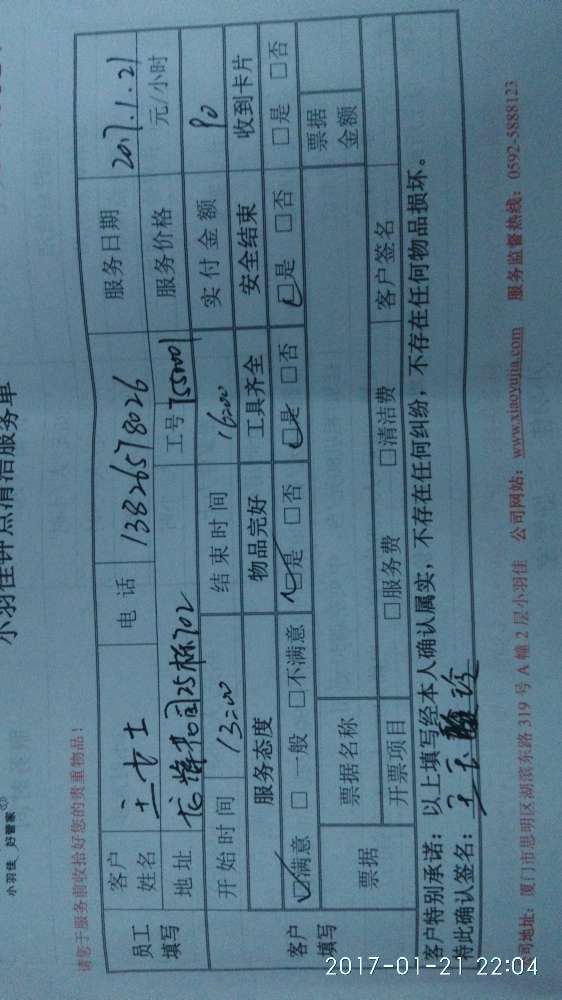 小羽佳 好管家
小羽佳钟点清洁服务单
请您于服务前收拾好您的贵重物品！
员工填写 客户姓名 王女士 电话 13826578026 服务日期 2017.1.21
地址 25栋702 工号 755001 服务价格 元/小时
开始时间 13:00 结束时间 16:00 实付金额 90
客户填写 服务态度 物品完好 工具齐全 安全结束 收到卡片
☑满意 □一般 □不满意 ☑是 □否 ☑是 □否 ☑是 □否 □是 □否
票据 票据名称 票据金额
开票项目 □服务费 □清洁费 客户签名
客户特别承诺：以上填写经本人确认属实，不存在任何纠纷，不存在任何物品损坏。
特此确认签名：王
公司地址：厦门市思明区湖滨东路 319 号 A 幢 2 层小羽佳 公司网站：www.xiaoyujia.com 服务监督热线：0592-5888123
2017-01-21 22:04